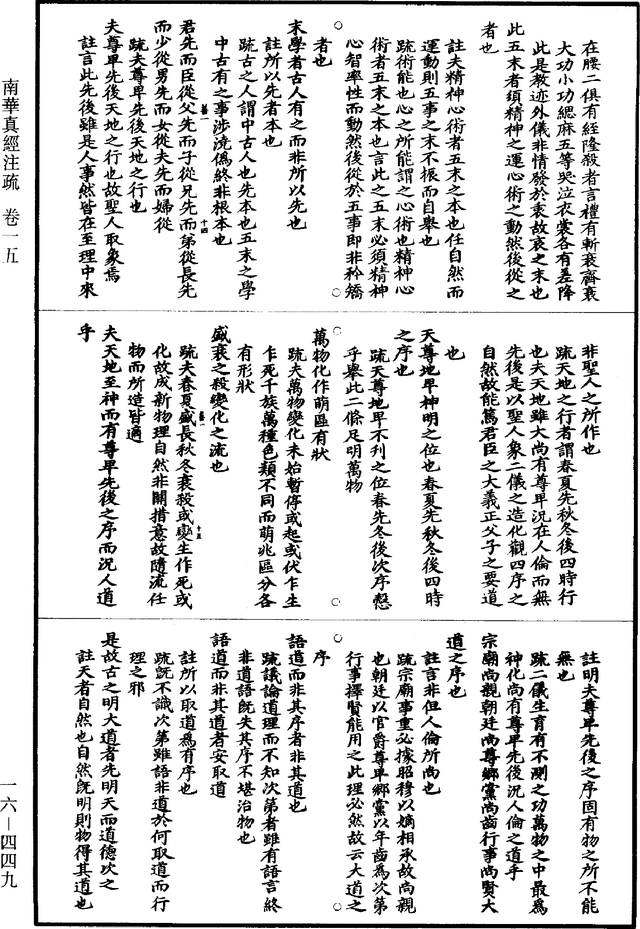 南華真經注疏　卷一五
在腰二俱有經隆殺者言禮有斬衰齊衰
大功小功緦麻五等哭泣衣裳各有差降
此是教迹外儀非情發於衷故哀之末也
此五末者須精神之運心術之動然後從之
者也
註夫精神心術者五末之本也任自然而
運動則五事之末不振而自舉也
疏術能也心之所能謂之心術也精神心
術者五末之本也言此之五末必須精神
心智率性而動然後從於五事即非矜矯
者也
末學者古人有之而非所以先也
註所以先者本也
疏古之人謂中古人也先本也五末之學
中古有之事涉澆偽終非根本也
君先而臣從父先而子從兄先而弟從長先
而少從男先而女從夫先而婦從
疏夫尊卑先後天地之行也
夫尊卑先後天地之行也故聖人取象焉
註言此先後雖是人事然皆在至理中來
非聖人之所作也
疏天地之行者謂春夏先秋冬後四時行
也夫天地雖大尚有尊卑況在人倫而無
先後是以聖人象二儀之造化觀四序之
自然故能篤君臣之大義正父子之要道
也
天尊地卑神明之位也春夏先秋冬後四時
之序也
疏天尊地卑不刋之位春先冬後次序慤
乎舉此二條足明萬物
萬物化作萌區有狀
疏夫萬物變化未始暫停或起或伏乍生
乍死千族萬種色類不同而萌兆區分各
有形狀
盛衰之殺變化之流也
疏夫春夏盛長秋冬衰殺或變生作死或
化故成新物理自然非關措意故隨流任
物而所造皆適
夫天地至神而有尊卑先後之序而況人道
乎
註明夫尊卑先後之序固有物之所不能
無也
疏二儀生育有不測之功萬物之中最為
神化尚有尊卑先後況人倫之道乎
宗廟尚親朝廷尚尊鄉黨尚齒行事尚賢大
道之序也
註言非但人倫所尚也
疏宗廟事重必據昭穆以嫡相承故尚親
也朝廷以官爵尊卑鄉黨以年齒為次第
行事擇賢能用之此理必然故云大道之
序
語道而非其序者非其道也
疏議論道理而不知次第者雖有語言終
非道語既失其序不堪治物也
語道而非其道者安取道
註所以取道為有序也
疏既不識次第雖語非道於何取道而行
理之邪
是故古之明大道者先明天而道德次之
註天者自然也自然既明則物得其道也
一六－四四九